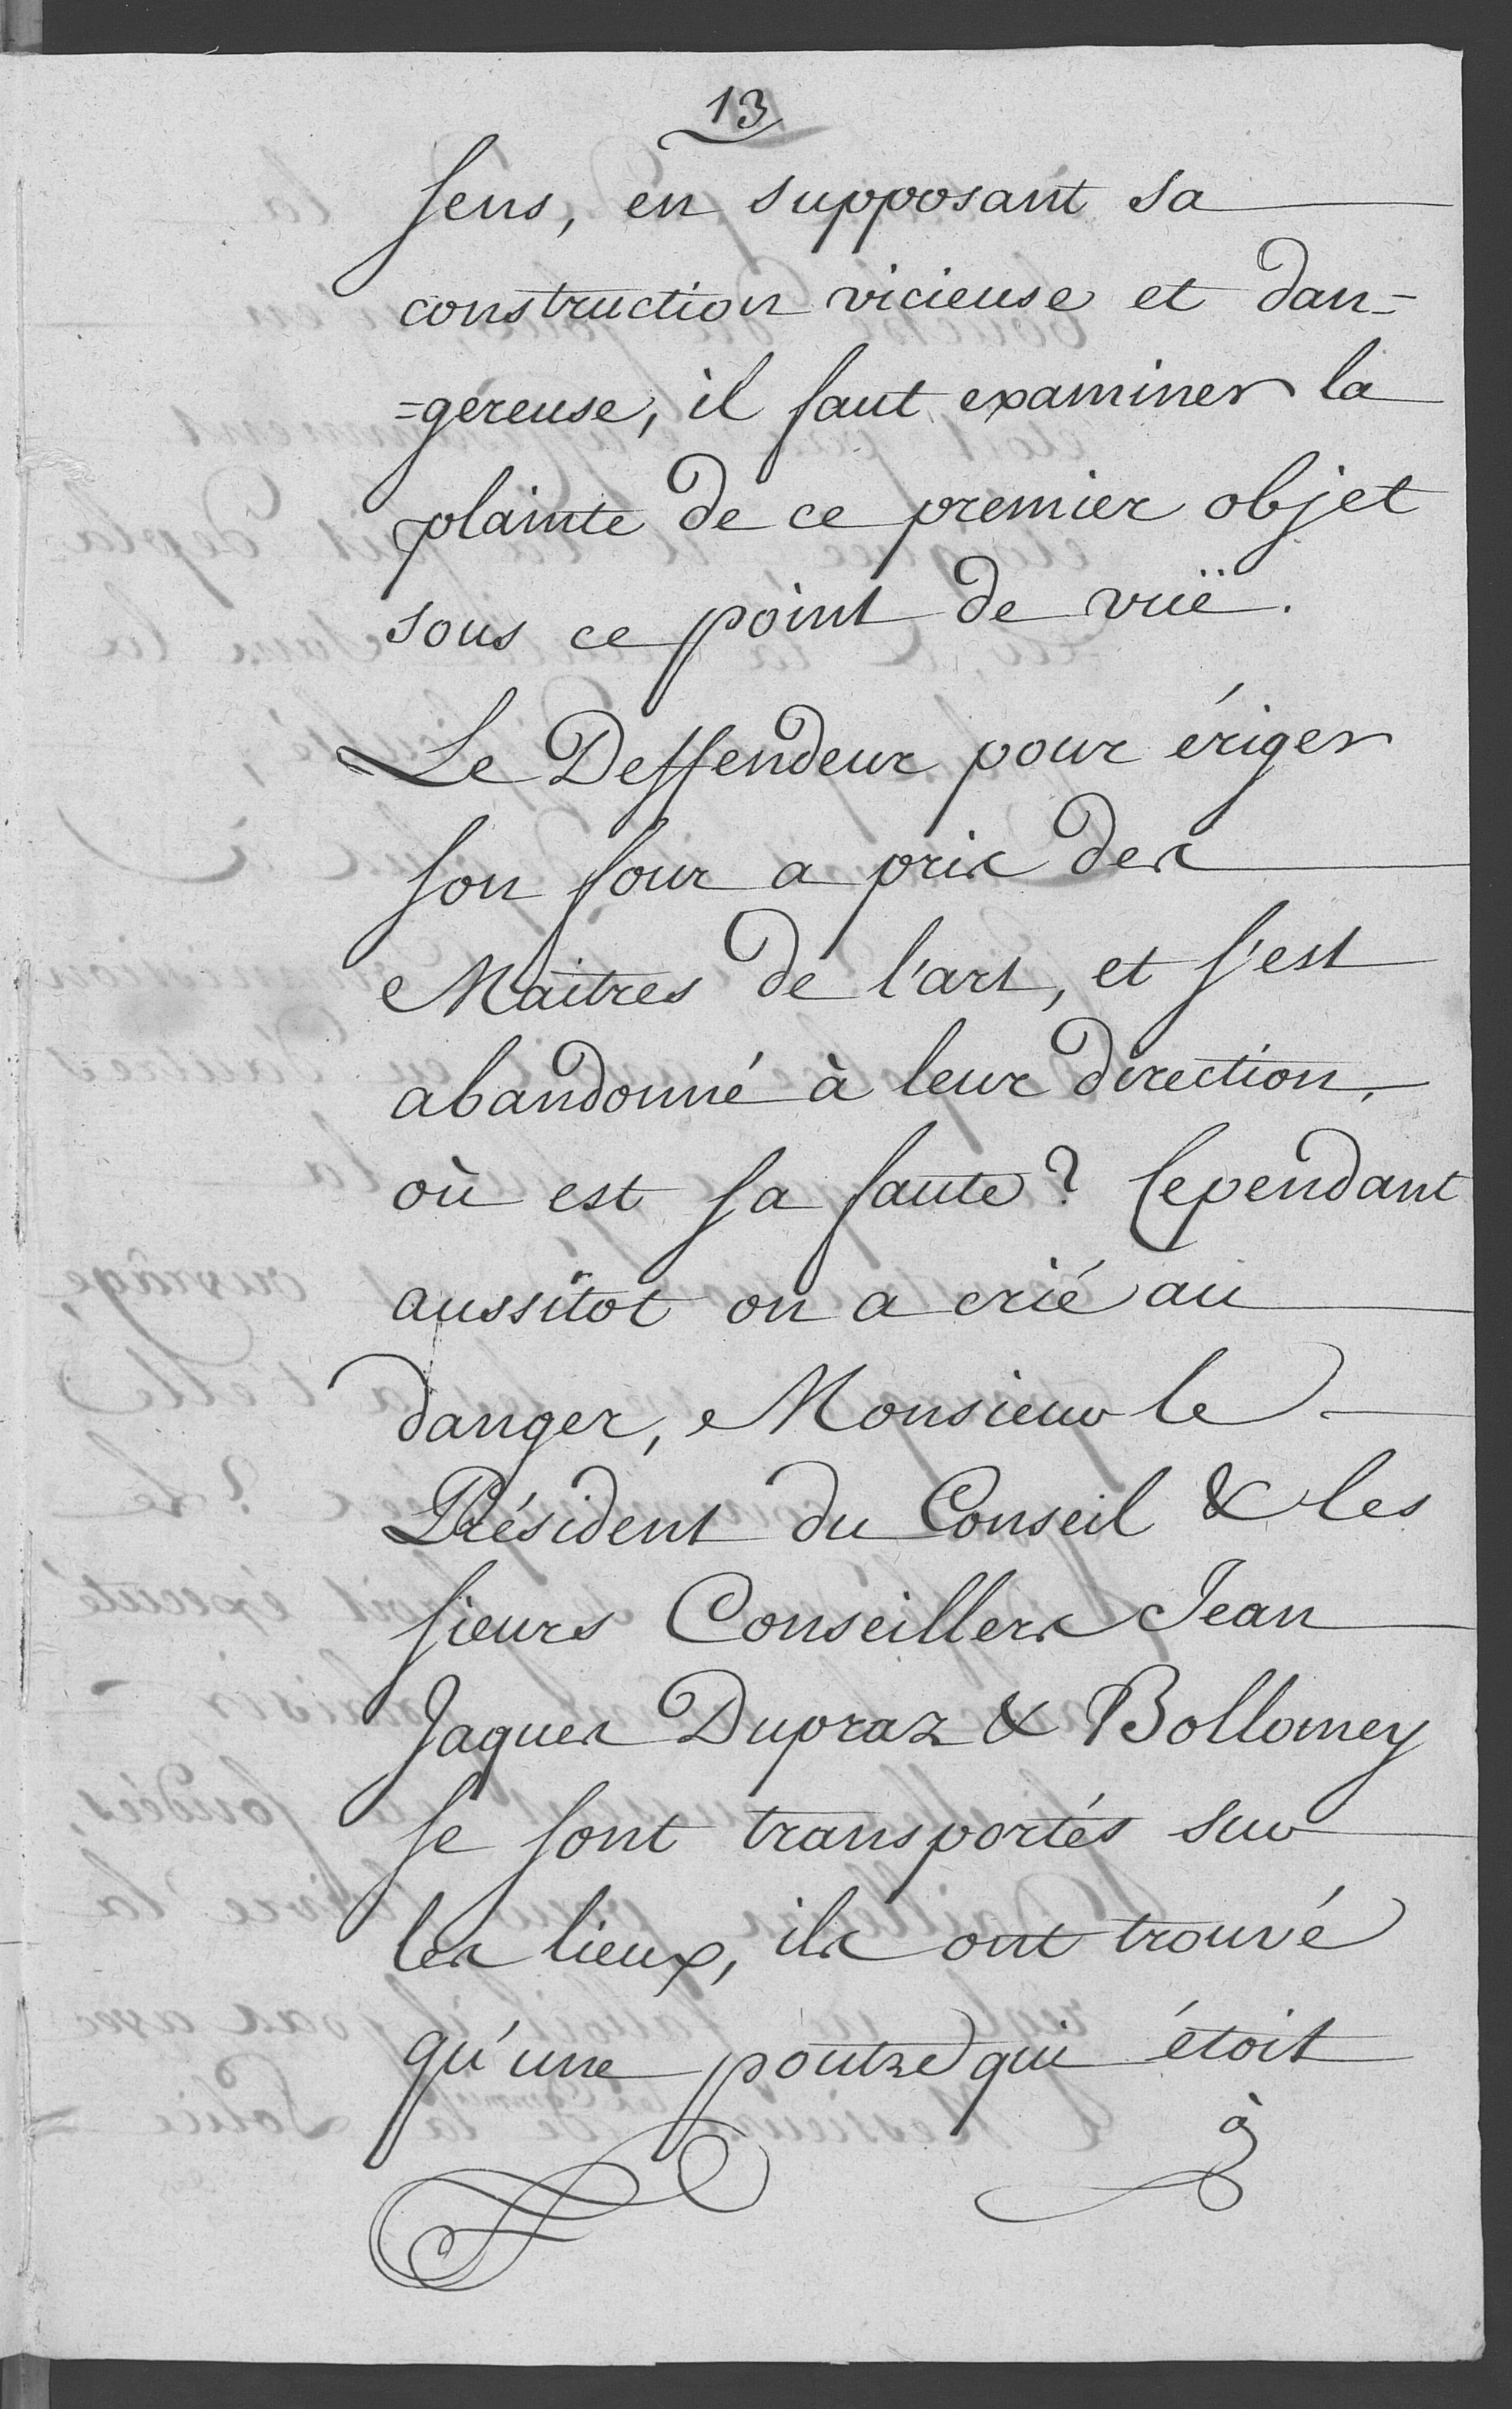 13
sens, en supposant sa
construction vicieuse et dan-
=gereuse, il faut examiner la
plainte de ce premier objet
sous ce point de vuë.
Le Deffendeur pour ériger
son four a pris des
Maitres de l'art, et s'est
abandonné à leur direction,
où est sa faute? Cependant
aussitot on a crié au
danger, Monsieur le
Président du Conseil & les
sieurs Conseillers Jean
Jaques Dupraz & Bollomey
se sont transportés sur
les lieux, ils ont trouvé
qu'une poutre qui étoit
à